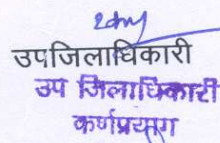 उपजिलाधिकारी
उप जिलाधिकारी
कर्णप्रयाग